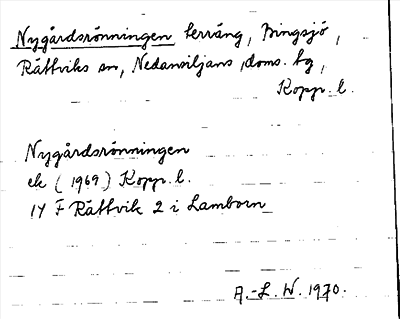 Nygårdsrönningen terräng, Bingsjö,
Rättviks sn, Nedansiljans doms. tg,
Kopp. l.
Nygårdsrönningen
ek (1969) Kopp. l.
14 F Rättvik 2 i Lamborn
A.-L. W. 1970.